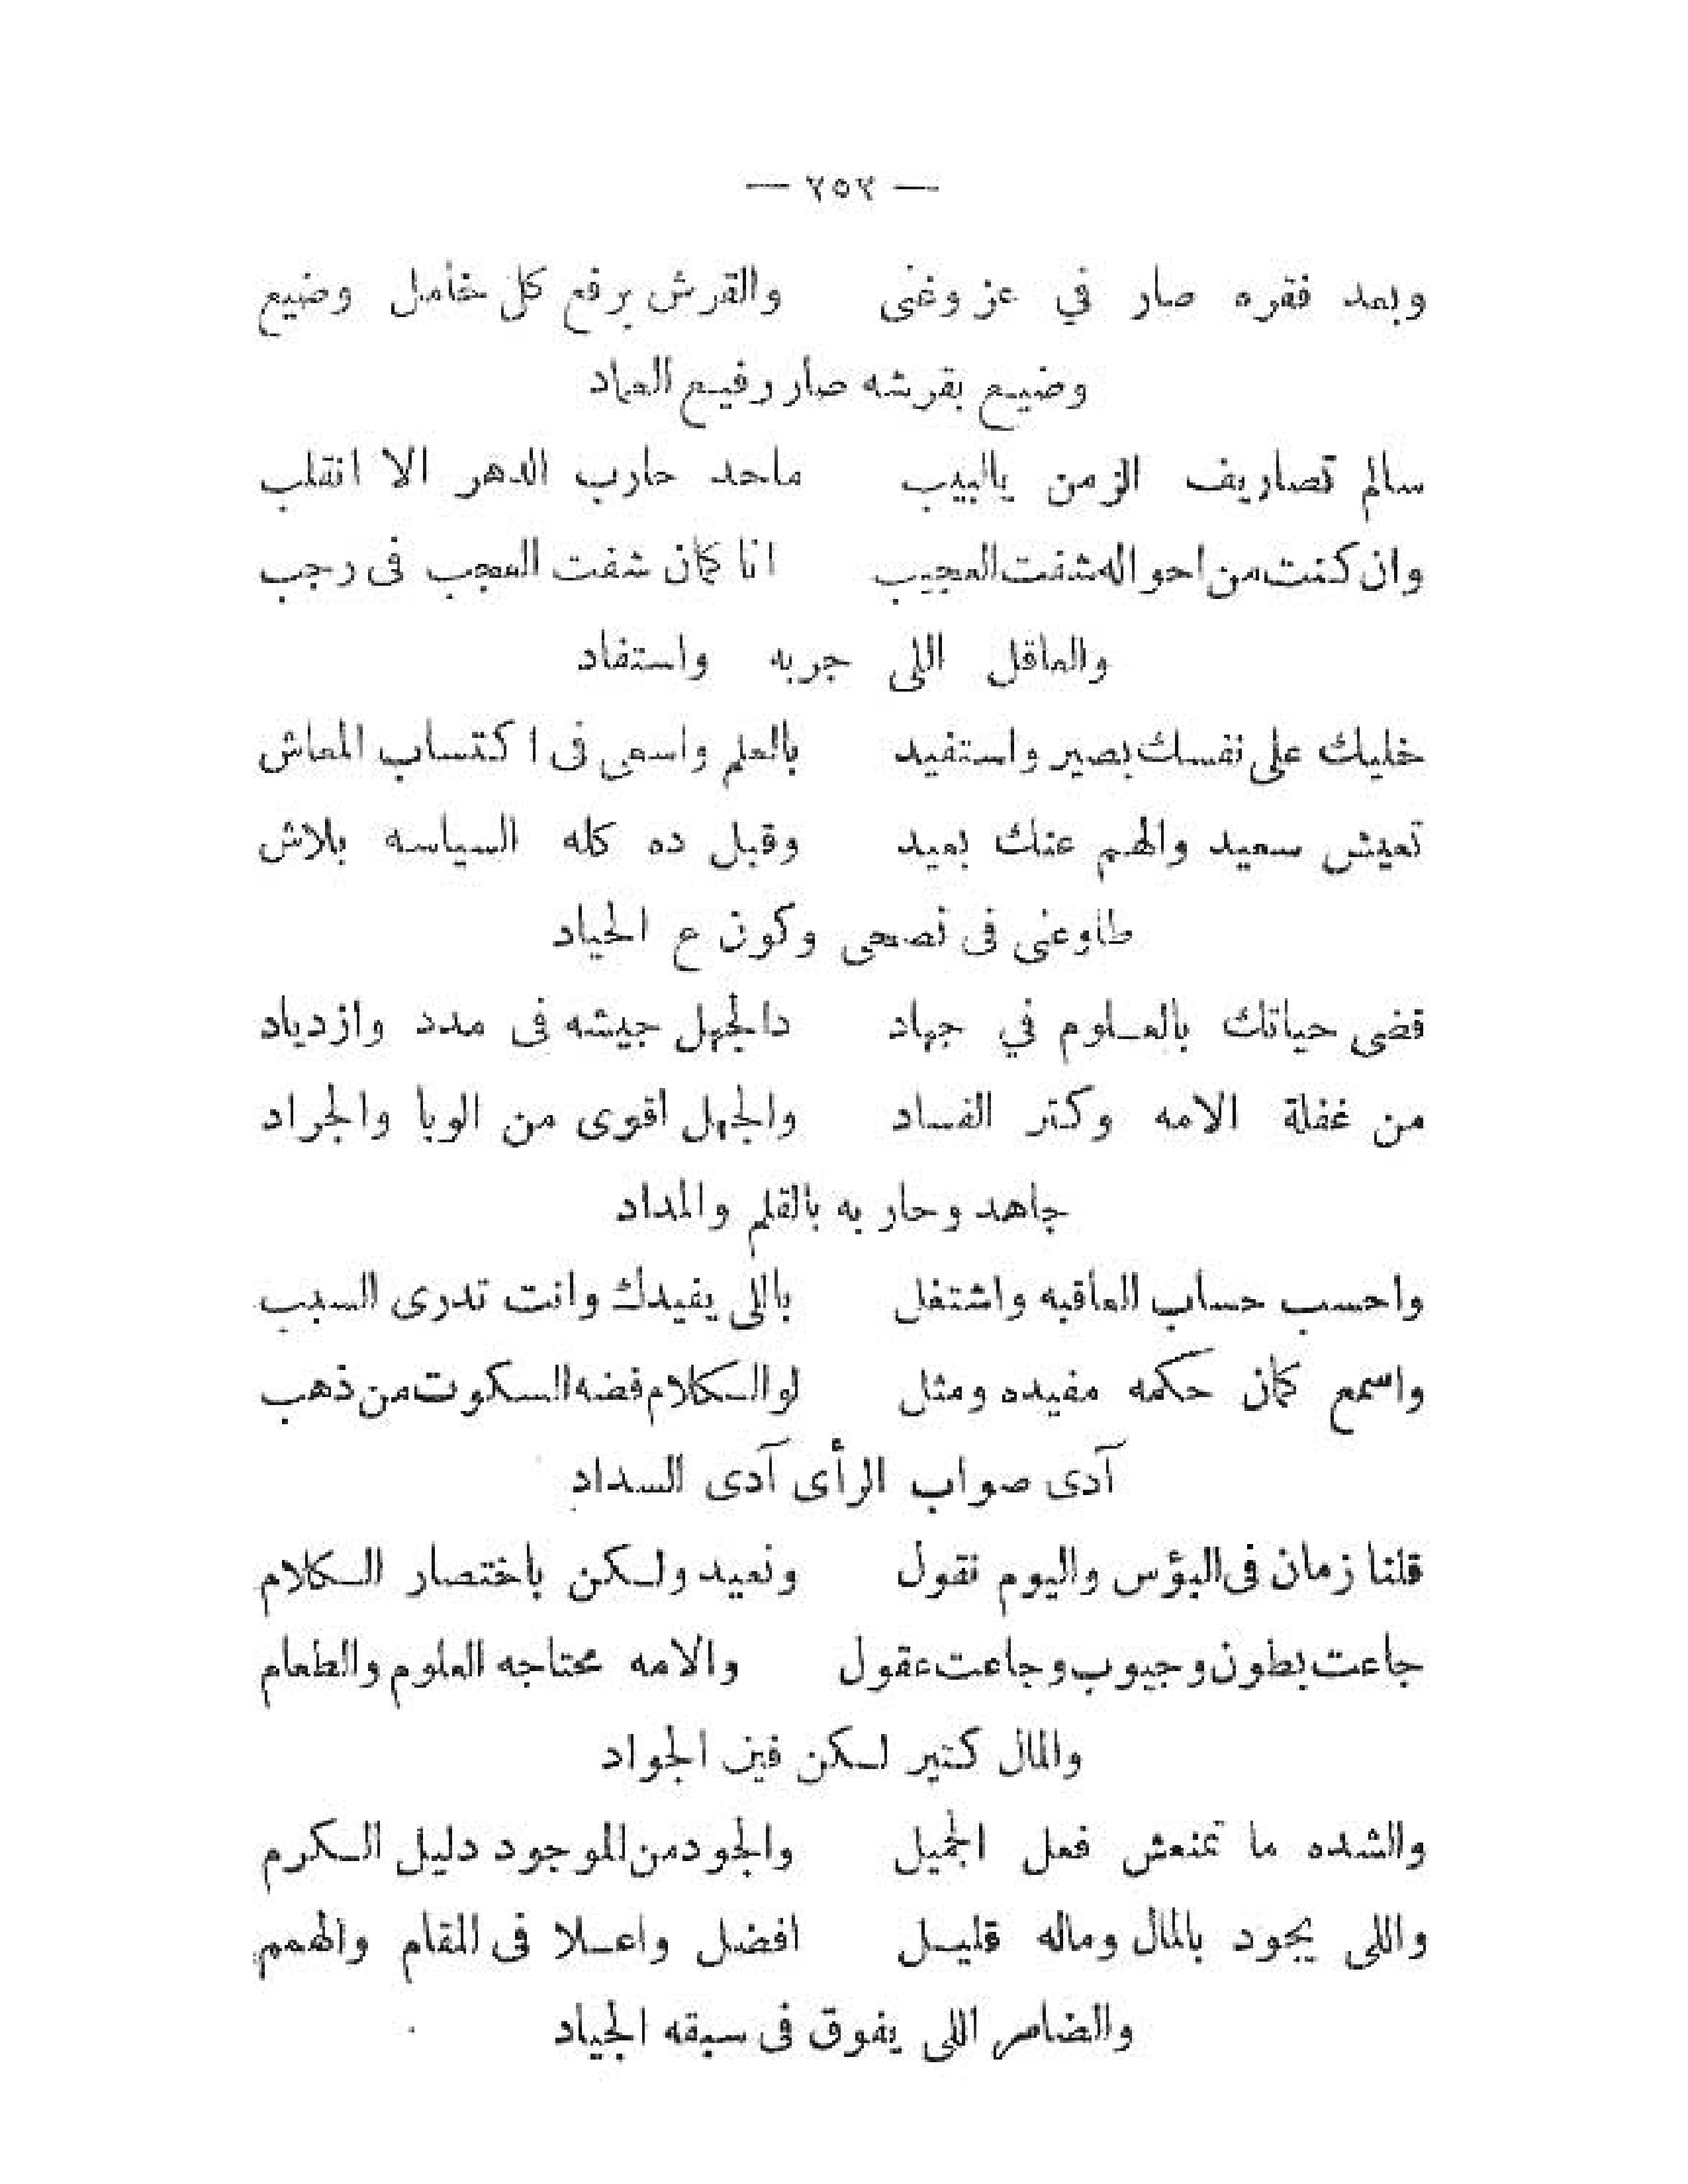 — ٢٥٢ —
وبعد فقره صار في عز وغنى والقرش يرفع كل خامل وضيع
وضيع بقرشه صار رفيع العماد
سالم تصاريف الزمن يالبيب ماحد حارب الدهر الا انقلب
وان كنت من احواله شفت العجيب انا كمان شفت العجب فى رجب
والعاقل اللى جربه واستفاد
خليك على نفسك بصير واستفيد بالعلم واسعى فى اكتساب المعاش
تعيش سعيد والهم عنك بعيد وقبل ده كله السياسه بلاش
طاوعنى فى نصحى وكون ع الحياد
قضى حياتك بالعلوم في جهاد دالجهل جيشه فى مدد وازدياد
من غفلة الامه وكتر الفساد والجهل اقوى من الوبا والجراد
جاهد وحار به بالقلم والمداد
واحسب حساب العاقبه واشتغل باللى يفيدك وانت تدرى السبب
واسمع كمان حكمه مفيده ومثل لو الكلام فضه السكوت من ذهب
آدى صواب الرأى آدى السداد
قلنا زمان فى البؤس واليوم نقول ونعيد ولكن باختصار الكلام
جاعت بطون وجيوب وجاعت عقول والامه محتاجه العلوم والطعام
والمال كتير لكن فين الجواد
والشده ما تمنعش فعل الجميل والجود من الموجود دليل الكرم
واللى يجود بالمال وماله قليل افضل واعلا فى المقام والهمم
والضامر اللى يفوق فى سبقه الجياد